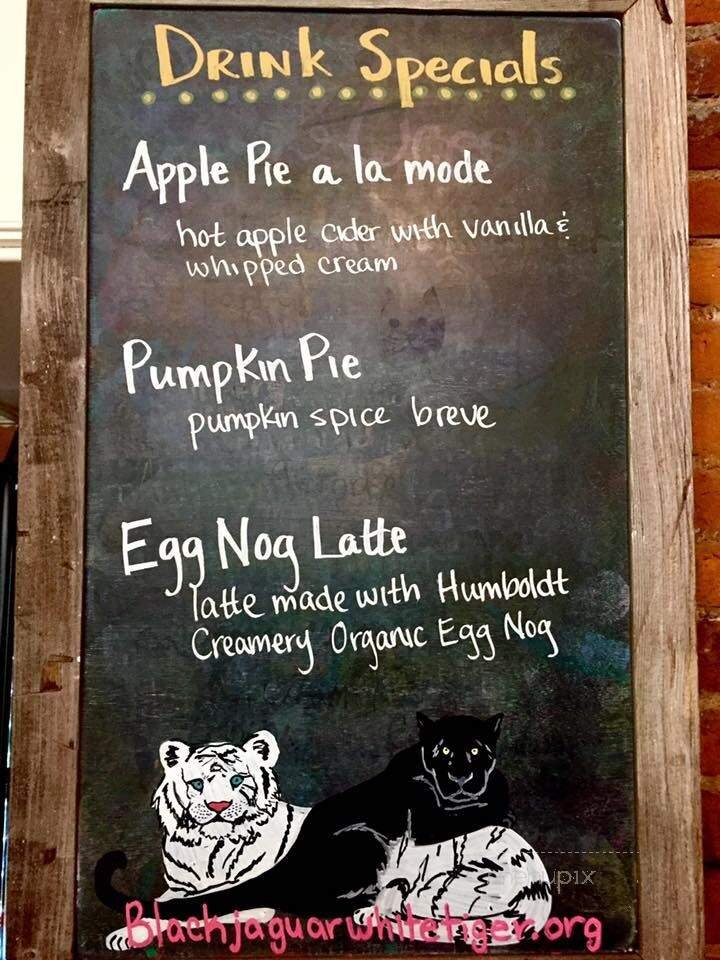 DRINK Specials
Apple Pie a la mode
hot apple cider with vanilla &
whipped cream
Pumpkin Pie
pumpkin spice breve
Egg Nog Latte
latte made with Humboldt
Creamery Organic Egg Nog
Blackjaguarwhitetiger.org